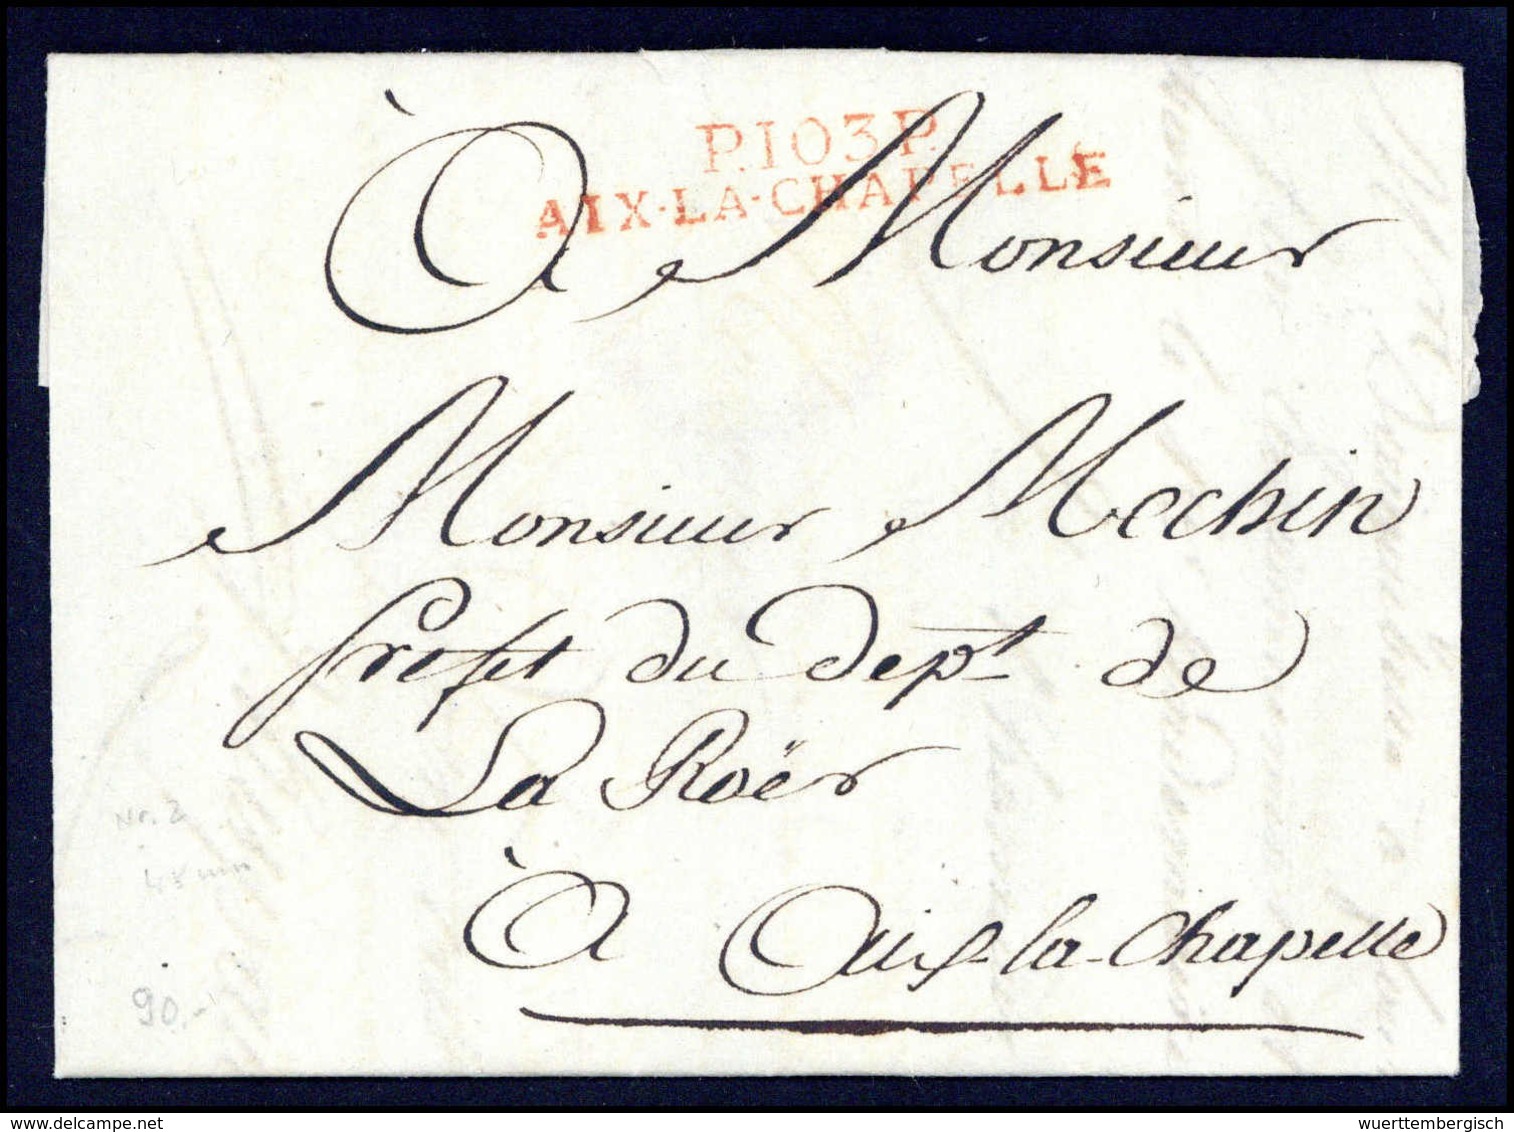 P.103.P.
AIX-LA-CHAPELLE
À Monsieur
Monsieur Mechin
Prefet du dept de
La Roër
Nr. 2
45 mm
À Aix-la-Chapelle
90.-
delcampe.net
wuerttembergisch